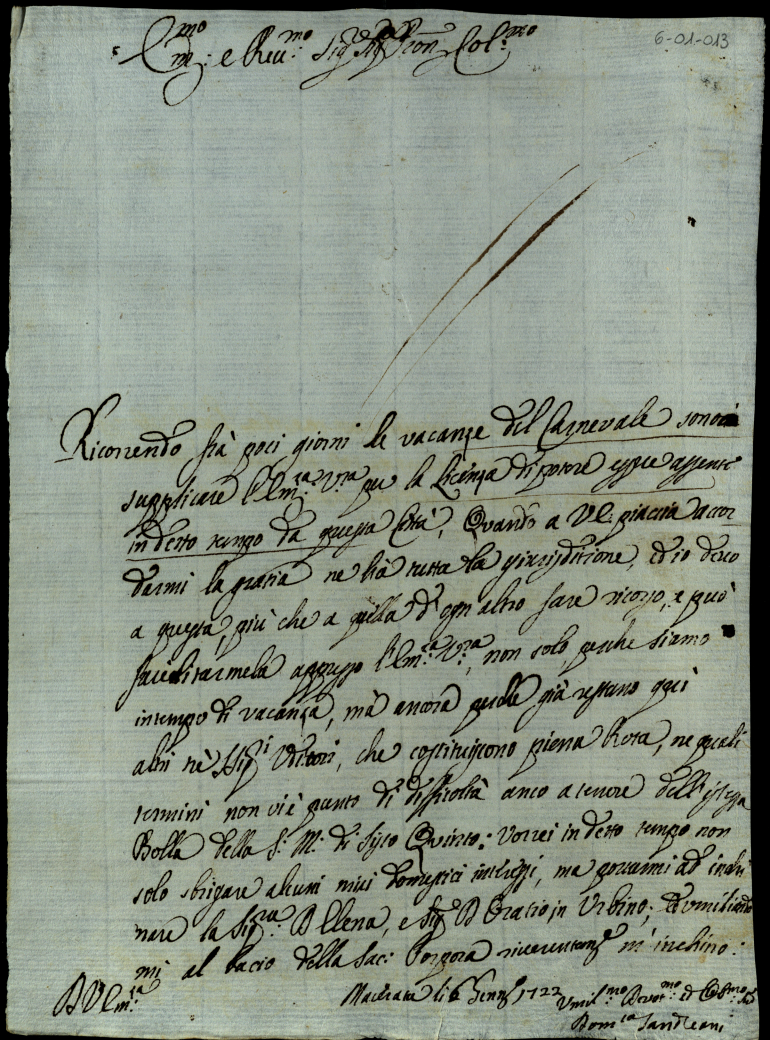 6-01-013
Em.mo e Rev.mo Sig.r Pron Col.mo
Ricorrendo frà poci giorni le vacanze del Carnevale sono à
supplicare l'Em.za V.ra per la licenza di potere essere assente
in detto tempo da questa Città, Quando a V.E. piaccia accor
darmi la gratia ne hà tutta la giurisditione, ed io devo
a questa, più che a quella d'ogn altro fare ricorso, e può
facilitarmela appresso l'Em.za V.ra, non solo perche siamo
in tempo di vacanza, mà ancora perche già restano qui
altri trè SSig.ri Uditori, che costituiscono piena Rota, ne quali
termini non vi è punto di difficoltà anco a tenore dell'istessa
Bolla della S: M: di Sisto Quinto: Vorrei in detto tempo non
solo sbrigare alcuni miei domestici interessi, ma portarmi ad inchi
nare la Sig.ra D Elena, e Sig.r D Oratio in Urbino; ed umiliando
mi al bacio della Sac: Porpora riverentem.e m'inchino:
D V Em.za
Macerata li 6 Genn.o 1722
Umil.mo Devot.mo ed Obl.mo